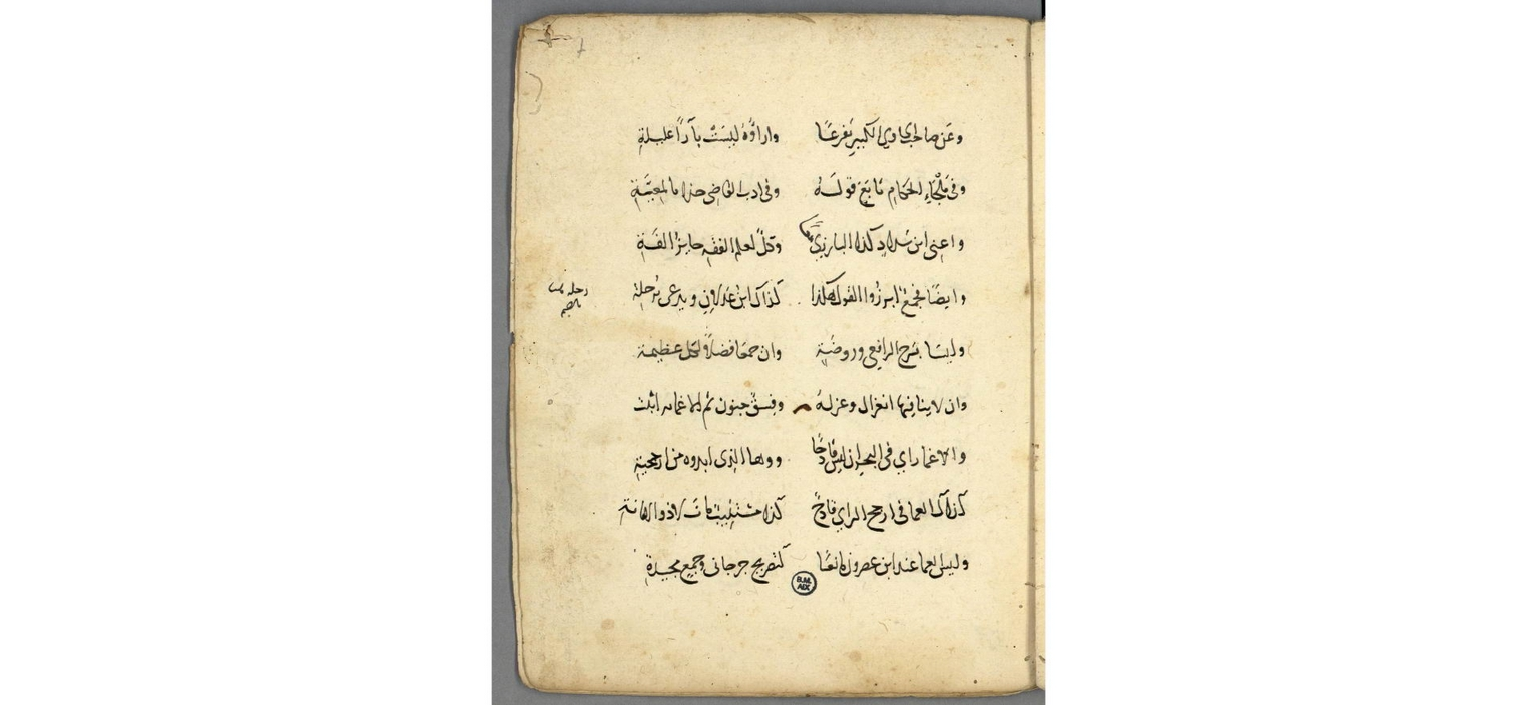 وعن صاحب الحاوي الكبير تفرعا واراؤه ليست بآراء عليلة
وفي ملجاء الحكام تابع قوله وفي ادب القاضي حذاما لمعيّة
واعني ابن شداد كذا البارزي وكل لعلم الفقه حايز
وايضا ابرزوا القول هكذا كذاك ابن عدلان ويدعى برحلة
رحلة بضم
ولبسا بشرح الرافعي وروضة وان جمعا فضلا لكل عظيمة
وان لا ينافيها انعزال وعزله وفسق جنون ثم الاغماء اثبت
والاغما راي في البحر ان ليس قادحا ووها الذي ابدوه من ارجحية
كذاك العما في ارجح الراي قادح كذا
وليس العما عند ابن عصرون مانعا كتصريح جرجاني وجميع مجيدة
B.M. AIX